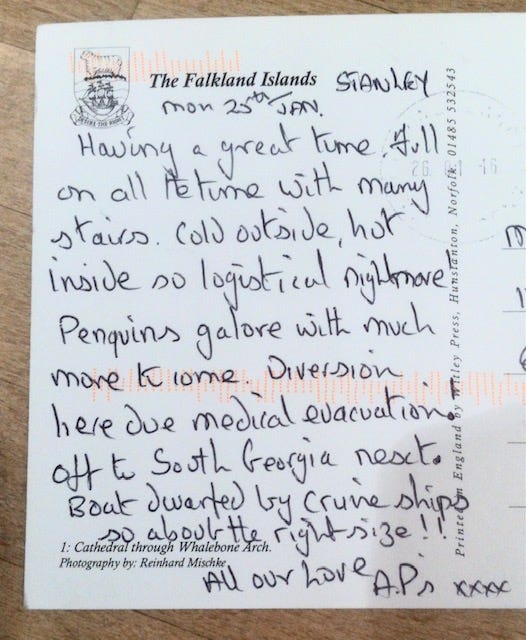 The Falkland Islands STANLEY
mon 25th JAN.
Having a great time. Full
on all the time with many
stairs. Cold outside, hot
inside so logistical nightmare!
Penguins galore with much
more to come. Diversion
here due medical evacuation.
off to South Georgia next.
Boat dwarfed by cruise ships
so about the right size!!
1: Cathedral through Whalebone Arch.
Photography by: Reinhard Mischke
All our love A.P's xxxx
Printed in England by Witley Press, Hunstanton, Norfolk. 01485 532543
DESIRE THE RIGHT